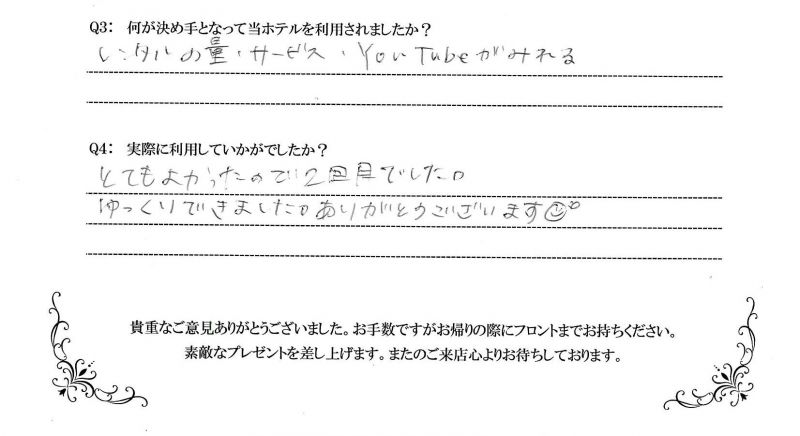 Q3: 何が決め手となって当ホテルを利用されましたか？
レンタルの量・サービス・YouTubeがみれる
Q4: 実際に利用していかがでしたか？
とてもよかったので2回目でした。
ゆっくりできました。ありがとうございます
貴重なご意見ありがとうございました。お手数ですがお帰りの際にフロントまでお持ちください。
素敵なプレゼントを差し上げます。またのご来店心よりお待ちしております。